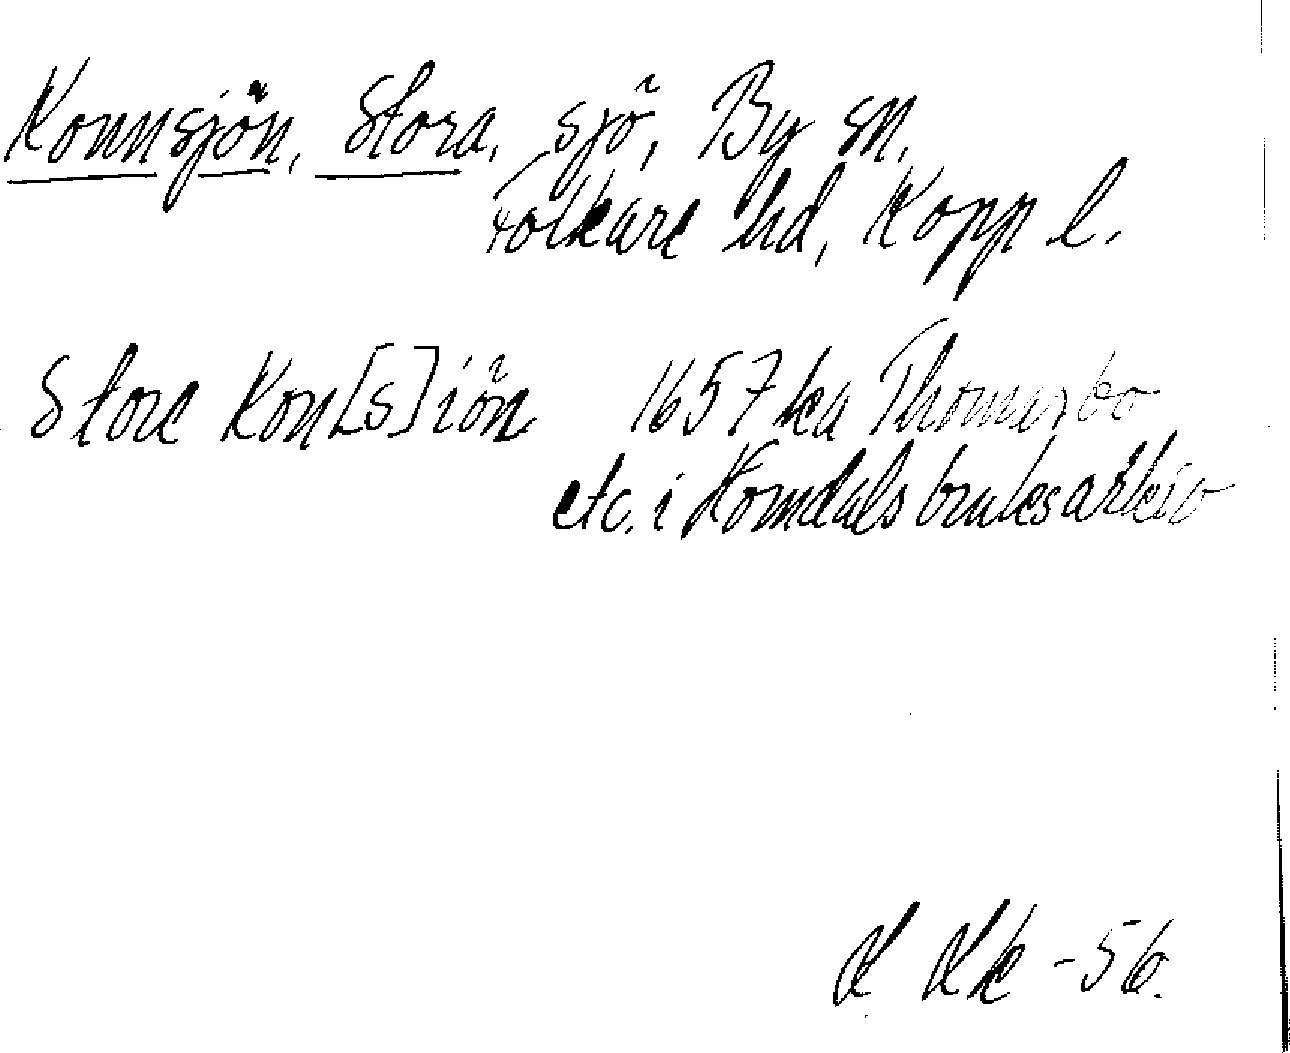 Konnsjön, Stora, sjö, By sn,
Folkare hd, Kopp l.
Store Kon[s]iön 1657 ka Thomasbo
etc. i Horndals bruksarkiv
-56.